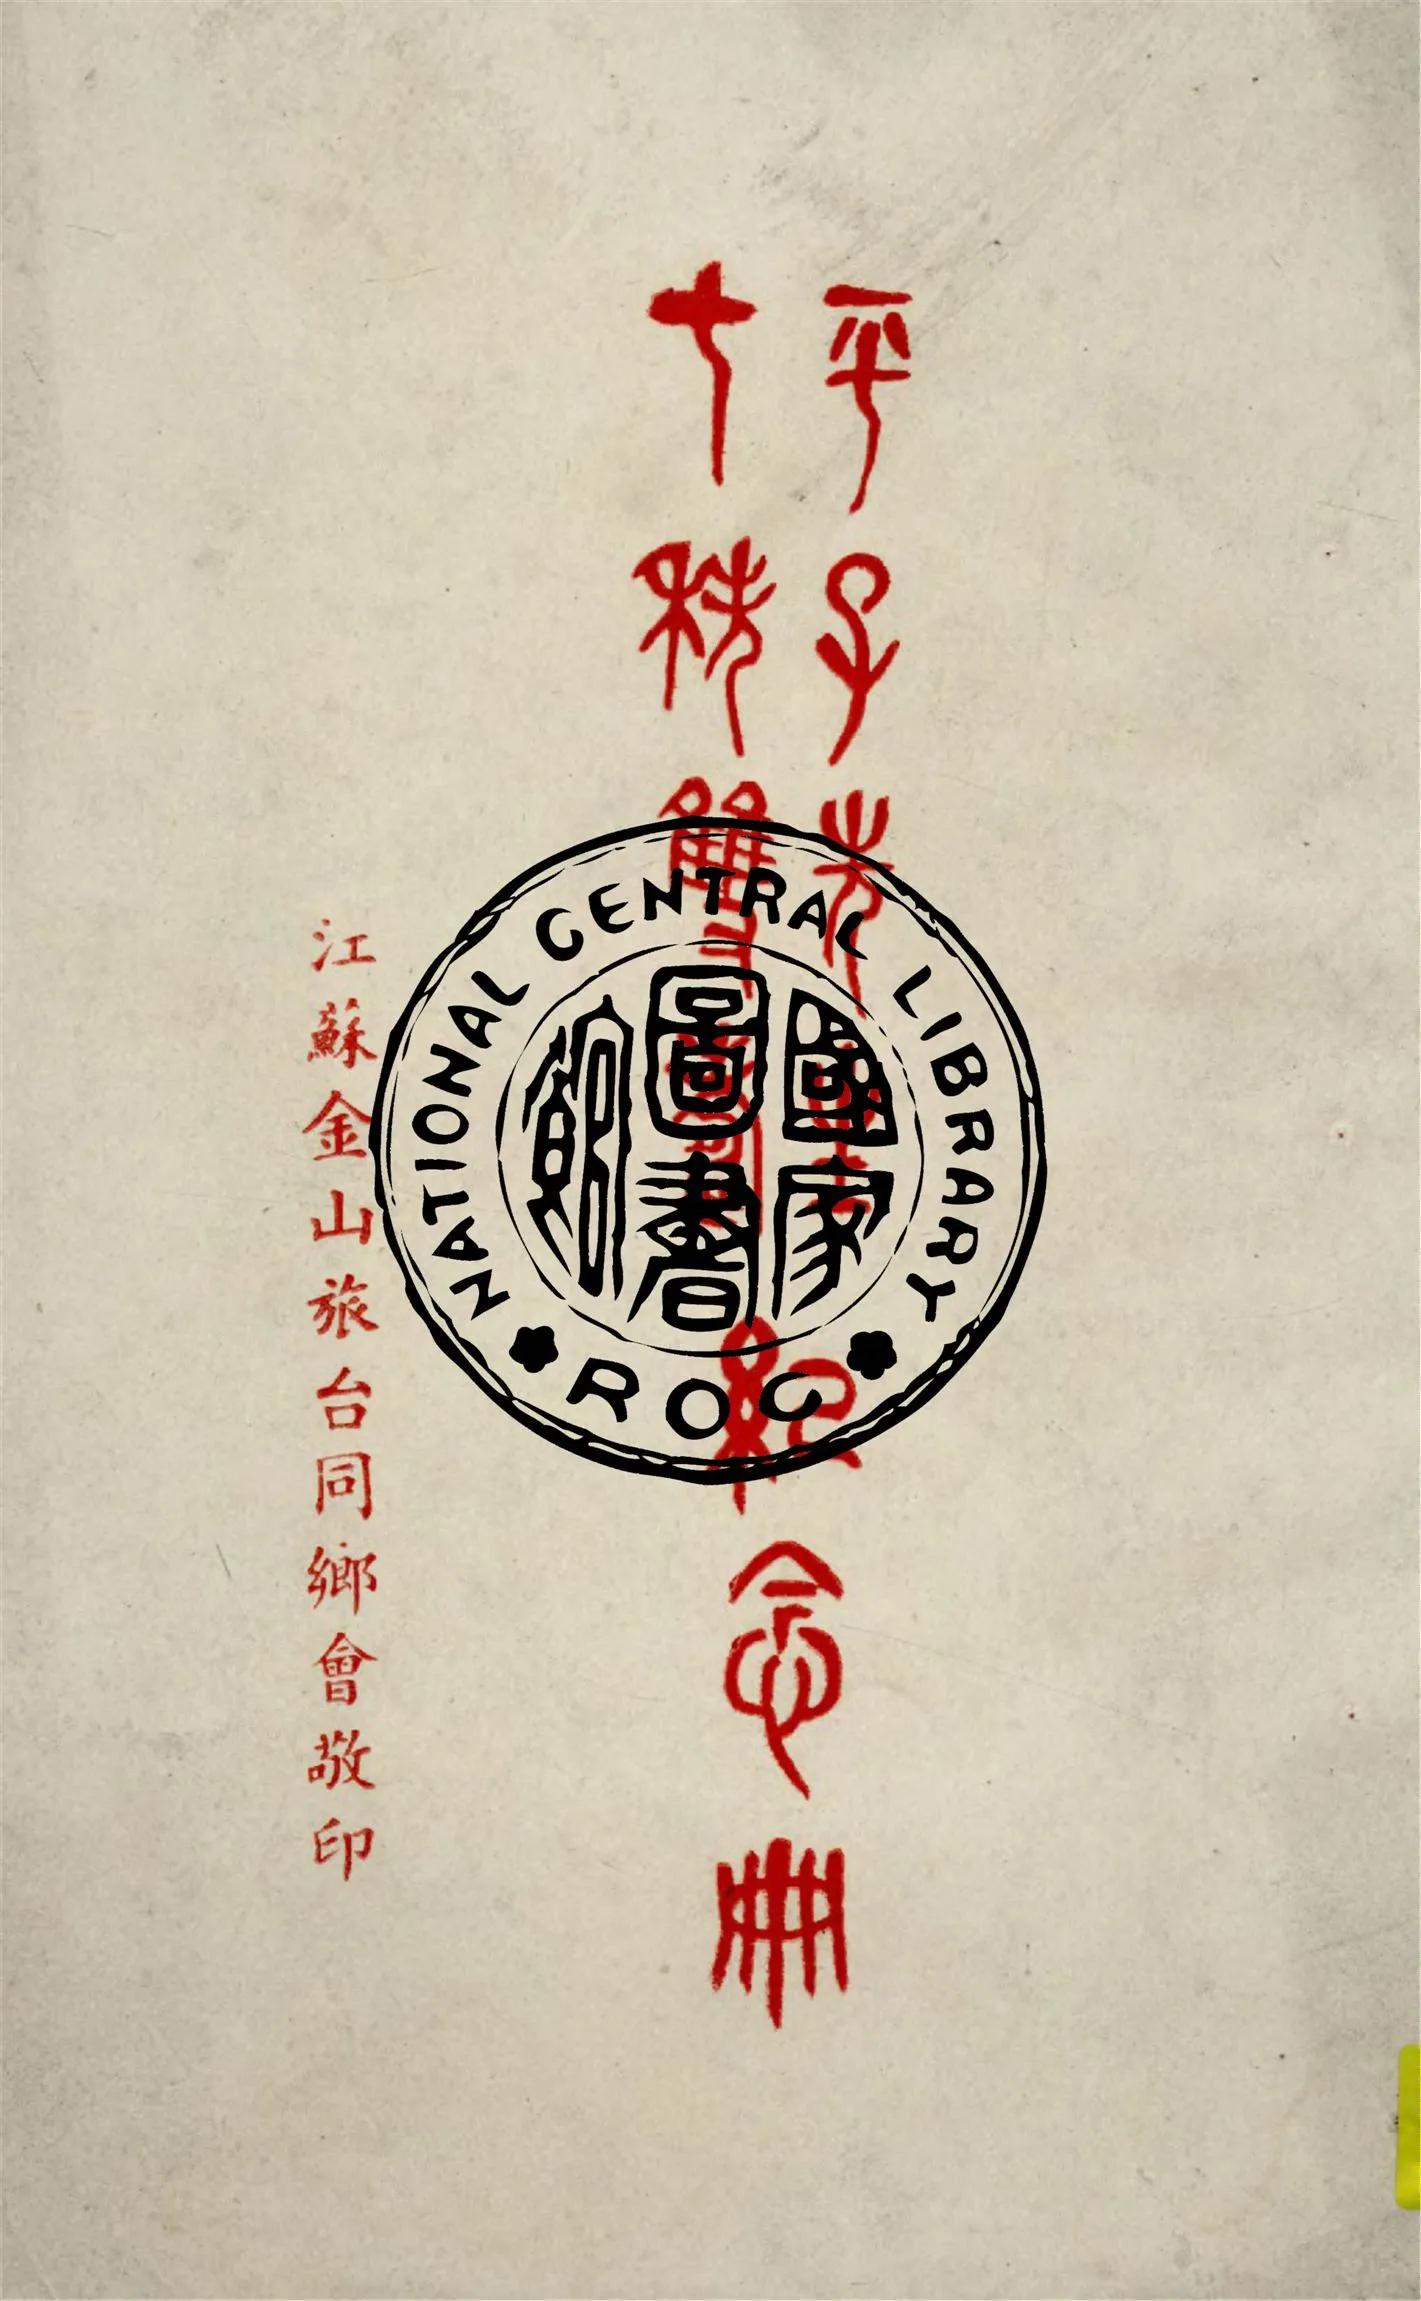 平子先生
七秩雙
紀念冊
江蘇金山旅台同鄉會敬印
NATIONAL CENTRAL LIBRARY
國家
圖書
館
ROC